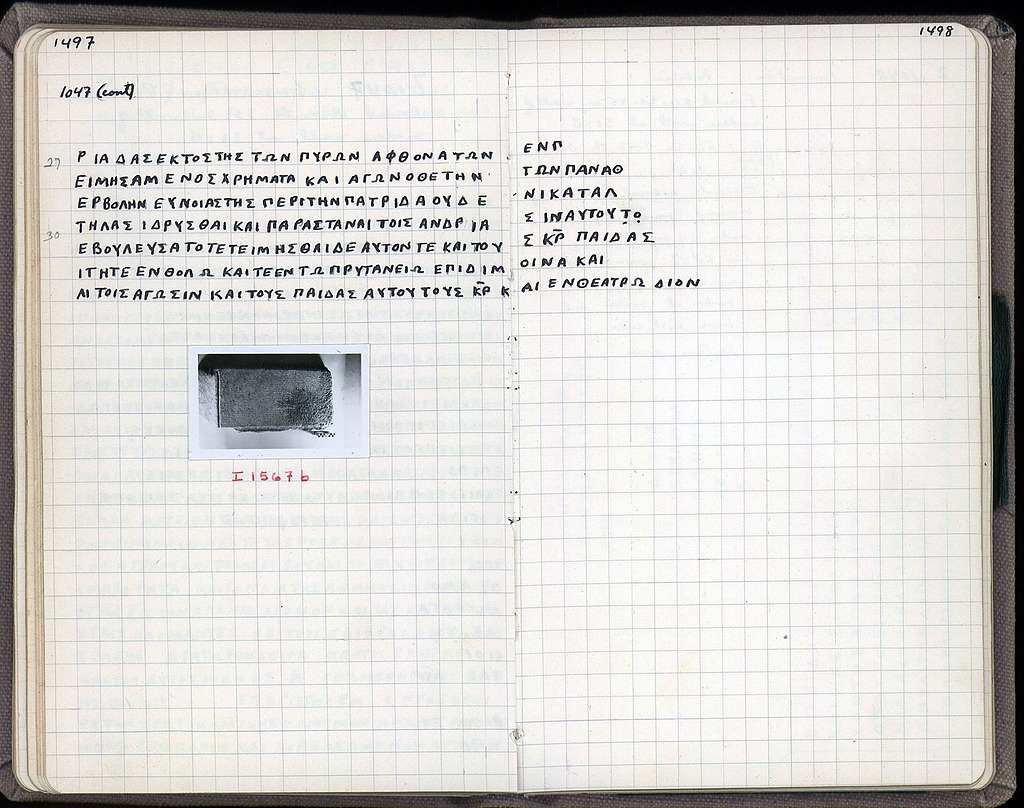 1497
1498
1047 (cont)
27 ΡΙΑΔΑΣΕΚΤΟΣΤΗΣΤΩΝΠΥΡΩΝ ΑΦΘΟΝΑΤΩΝ ΕΝΠ
ΕΙΜΗΣΑΜΕΝΟΣΧΡΗΜΑΤΑ ΚΑΙΑΓΩΝΟΘΕΤΗΝ ΤΩΝΠΑΝΑΘ
ΕΡΒΟΛΗΝ ΕΥΝΟΙΑΣΤΗΣ ΠΕΡΙΤΗΝΠΑΤΡΙΔΑΟΥΔΕ ΝΙΚΑΤΑΛ
30 ΤΗΛΑΣ ΙΔΡΥΣΘΑΙΚΑΙΠΑΡΑΣΤΑΝΑΙΤΟΙΣΑΝΔΡΙΑ ΣΙΝΑΥΤΟΥΤΟ
ΕΒΟΥΛΕΥΣΑΤΟΤΕΤΕΙΜΗΣΘΑΙΔΕΑΥΤΟΝΤΕ ΚΑΙΤΟΥ Σ ΚΡ ΠΑΙΔΑΣ
ΙΤΗΤΕΕΝΘΟΛΩ ΚΑΙΤΕΕΝΤΩΠΡΥΤΑΝΕΙΩ ΕΠΙΔΙΜ ΟΙΝΑ ΚΑΙ
ΛΙΤΟΙΣΑΓΩΣΙΝ ΚΑΙΤΟΥΣ ΠΑΙΔΑΣ ΑΥΤΟΥΤΟΥΣ ΚΡ Κ ΑΙ ΕΝΘΕΑΤΡΩ ΔΙΟΝ
I 1567 b